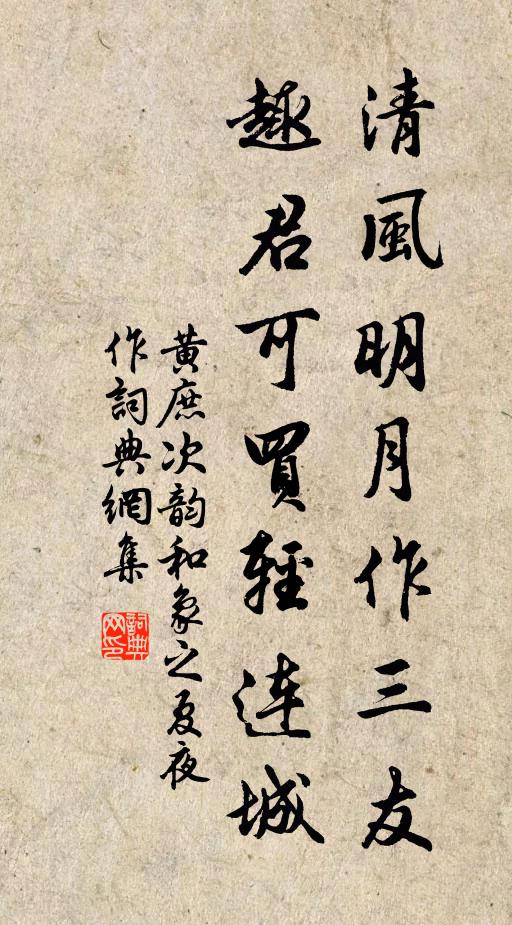 清風明月作三友
趣君可買輕連城
黃庶次韵和象之夏夜
作詞典網集
詞典
网印